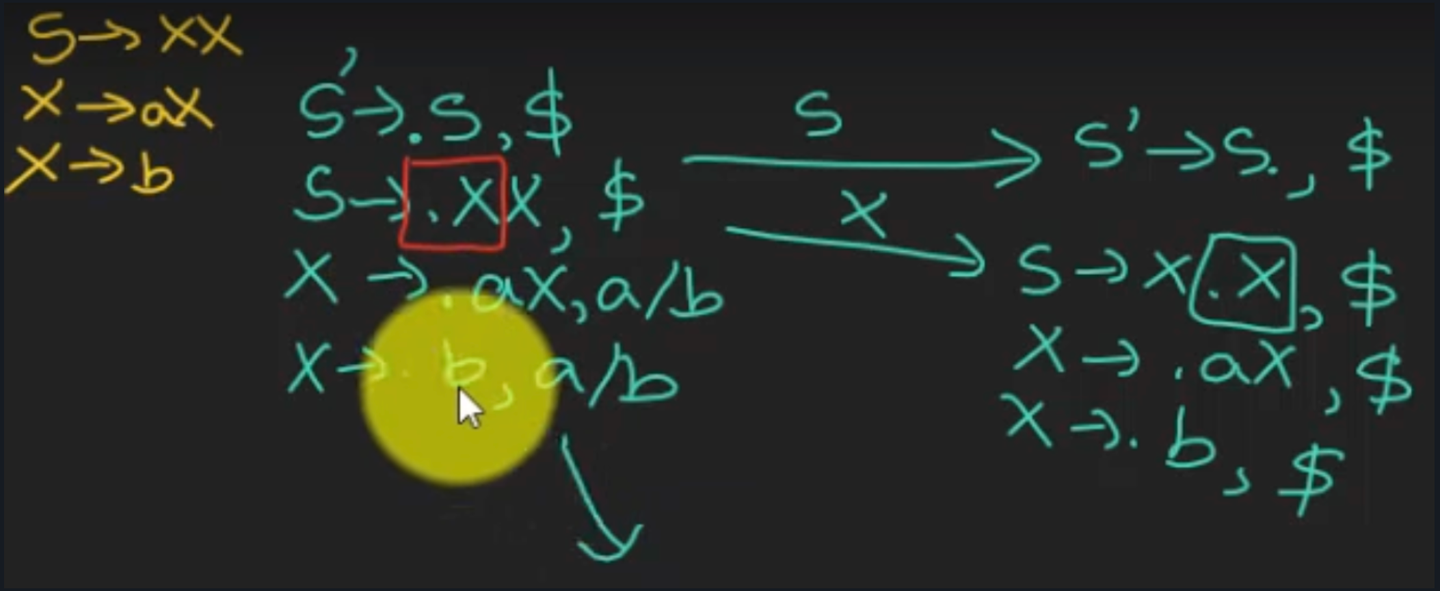 S→XX
X→aX
X→b
S'→.S,$
S→.XX,$
X→.aX,a/b
X→.b,a/b
S
X
S'→S.,$
S→X.X,$
X→.aX,$
X→.b,$